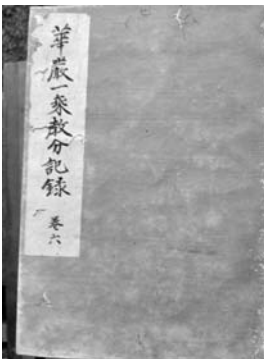 華嚴一乘教分記録 卷六